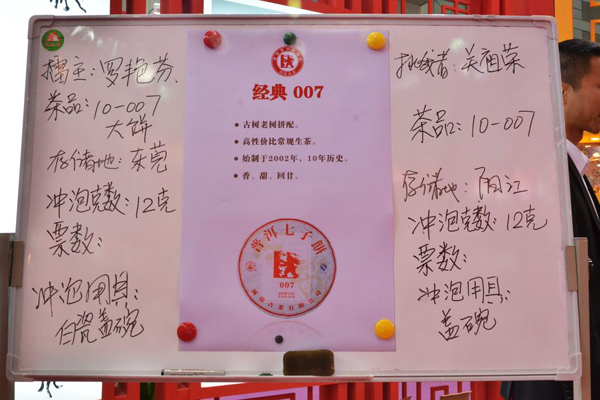 擂主:罗艳芬
茶品:10-007
大饼
存储地:东莞
冲泡克数:12克
票数:
冲泡用具:
白瓷盖碗
经典 007
古树老树拼配。
高性价比常规生茶。
始制于2002年,10年历史。
香、甜、回甘。
普洱七子餅
007
挑战者:关国荣
茶品:10-007
存储地:阳江
冲泡克数:12克
票数:
冲泡用具:
盖碗